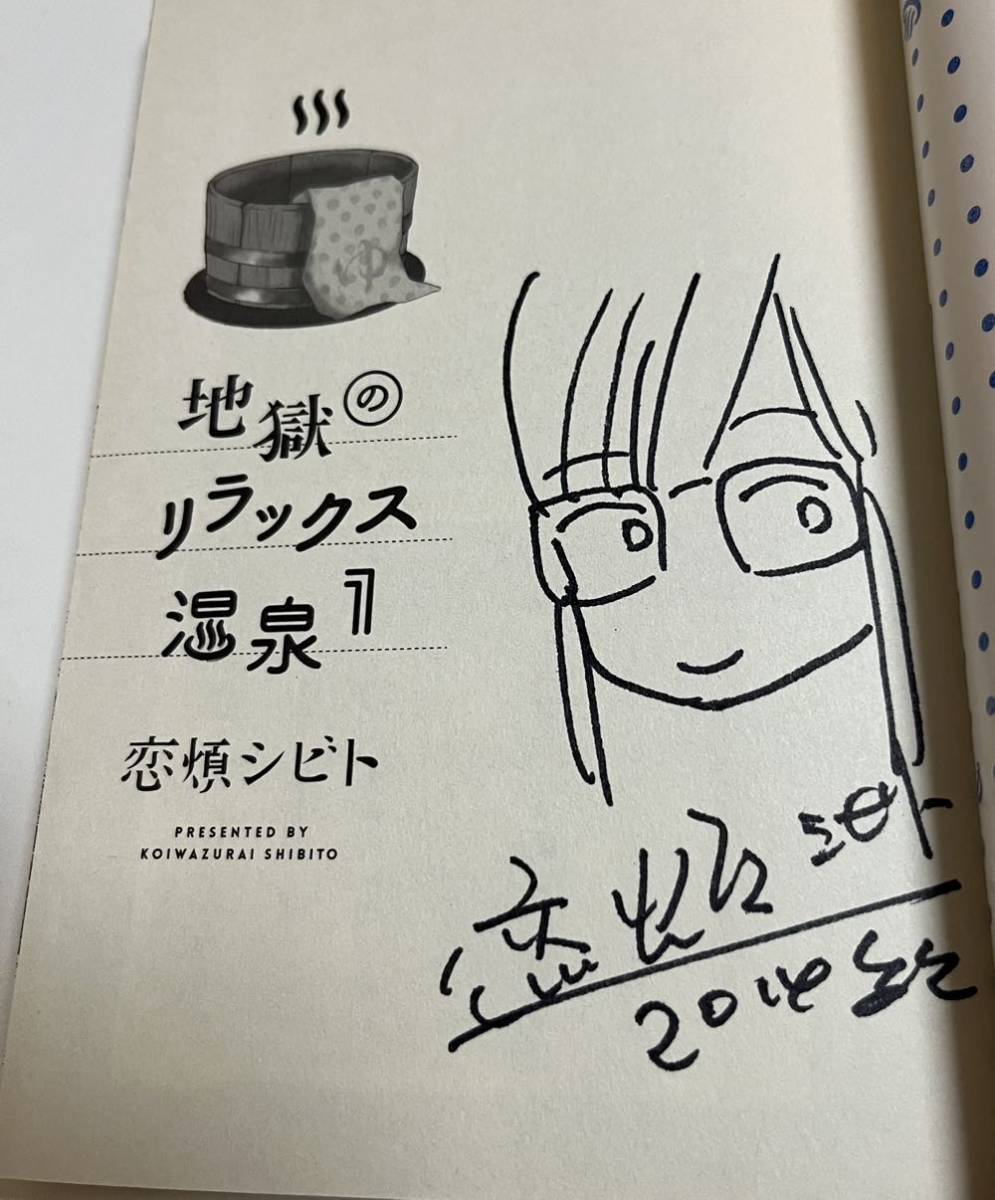 ゆ
地獄の
リラックス
温泉 1
恋煩シビト
PRESENTED BY
KOIWAZURAI SHIBITO
恋煩シビト